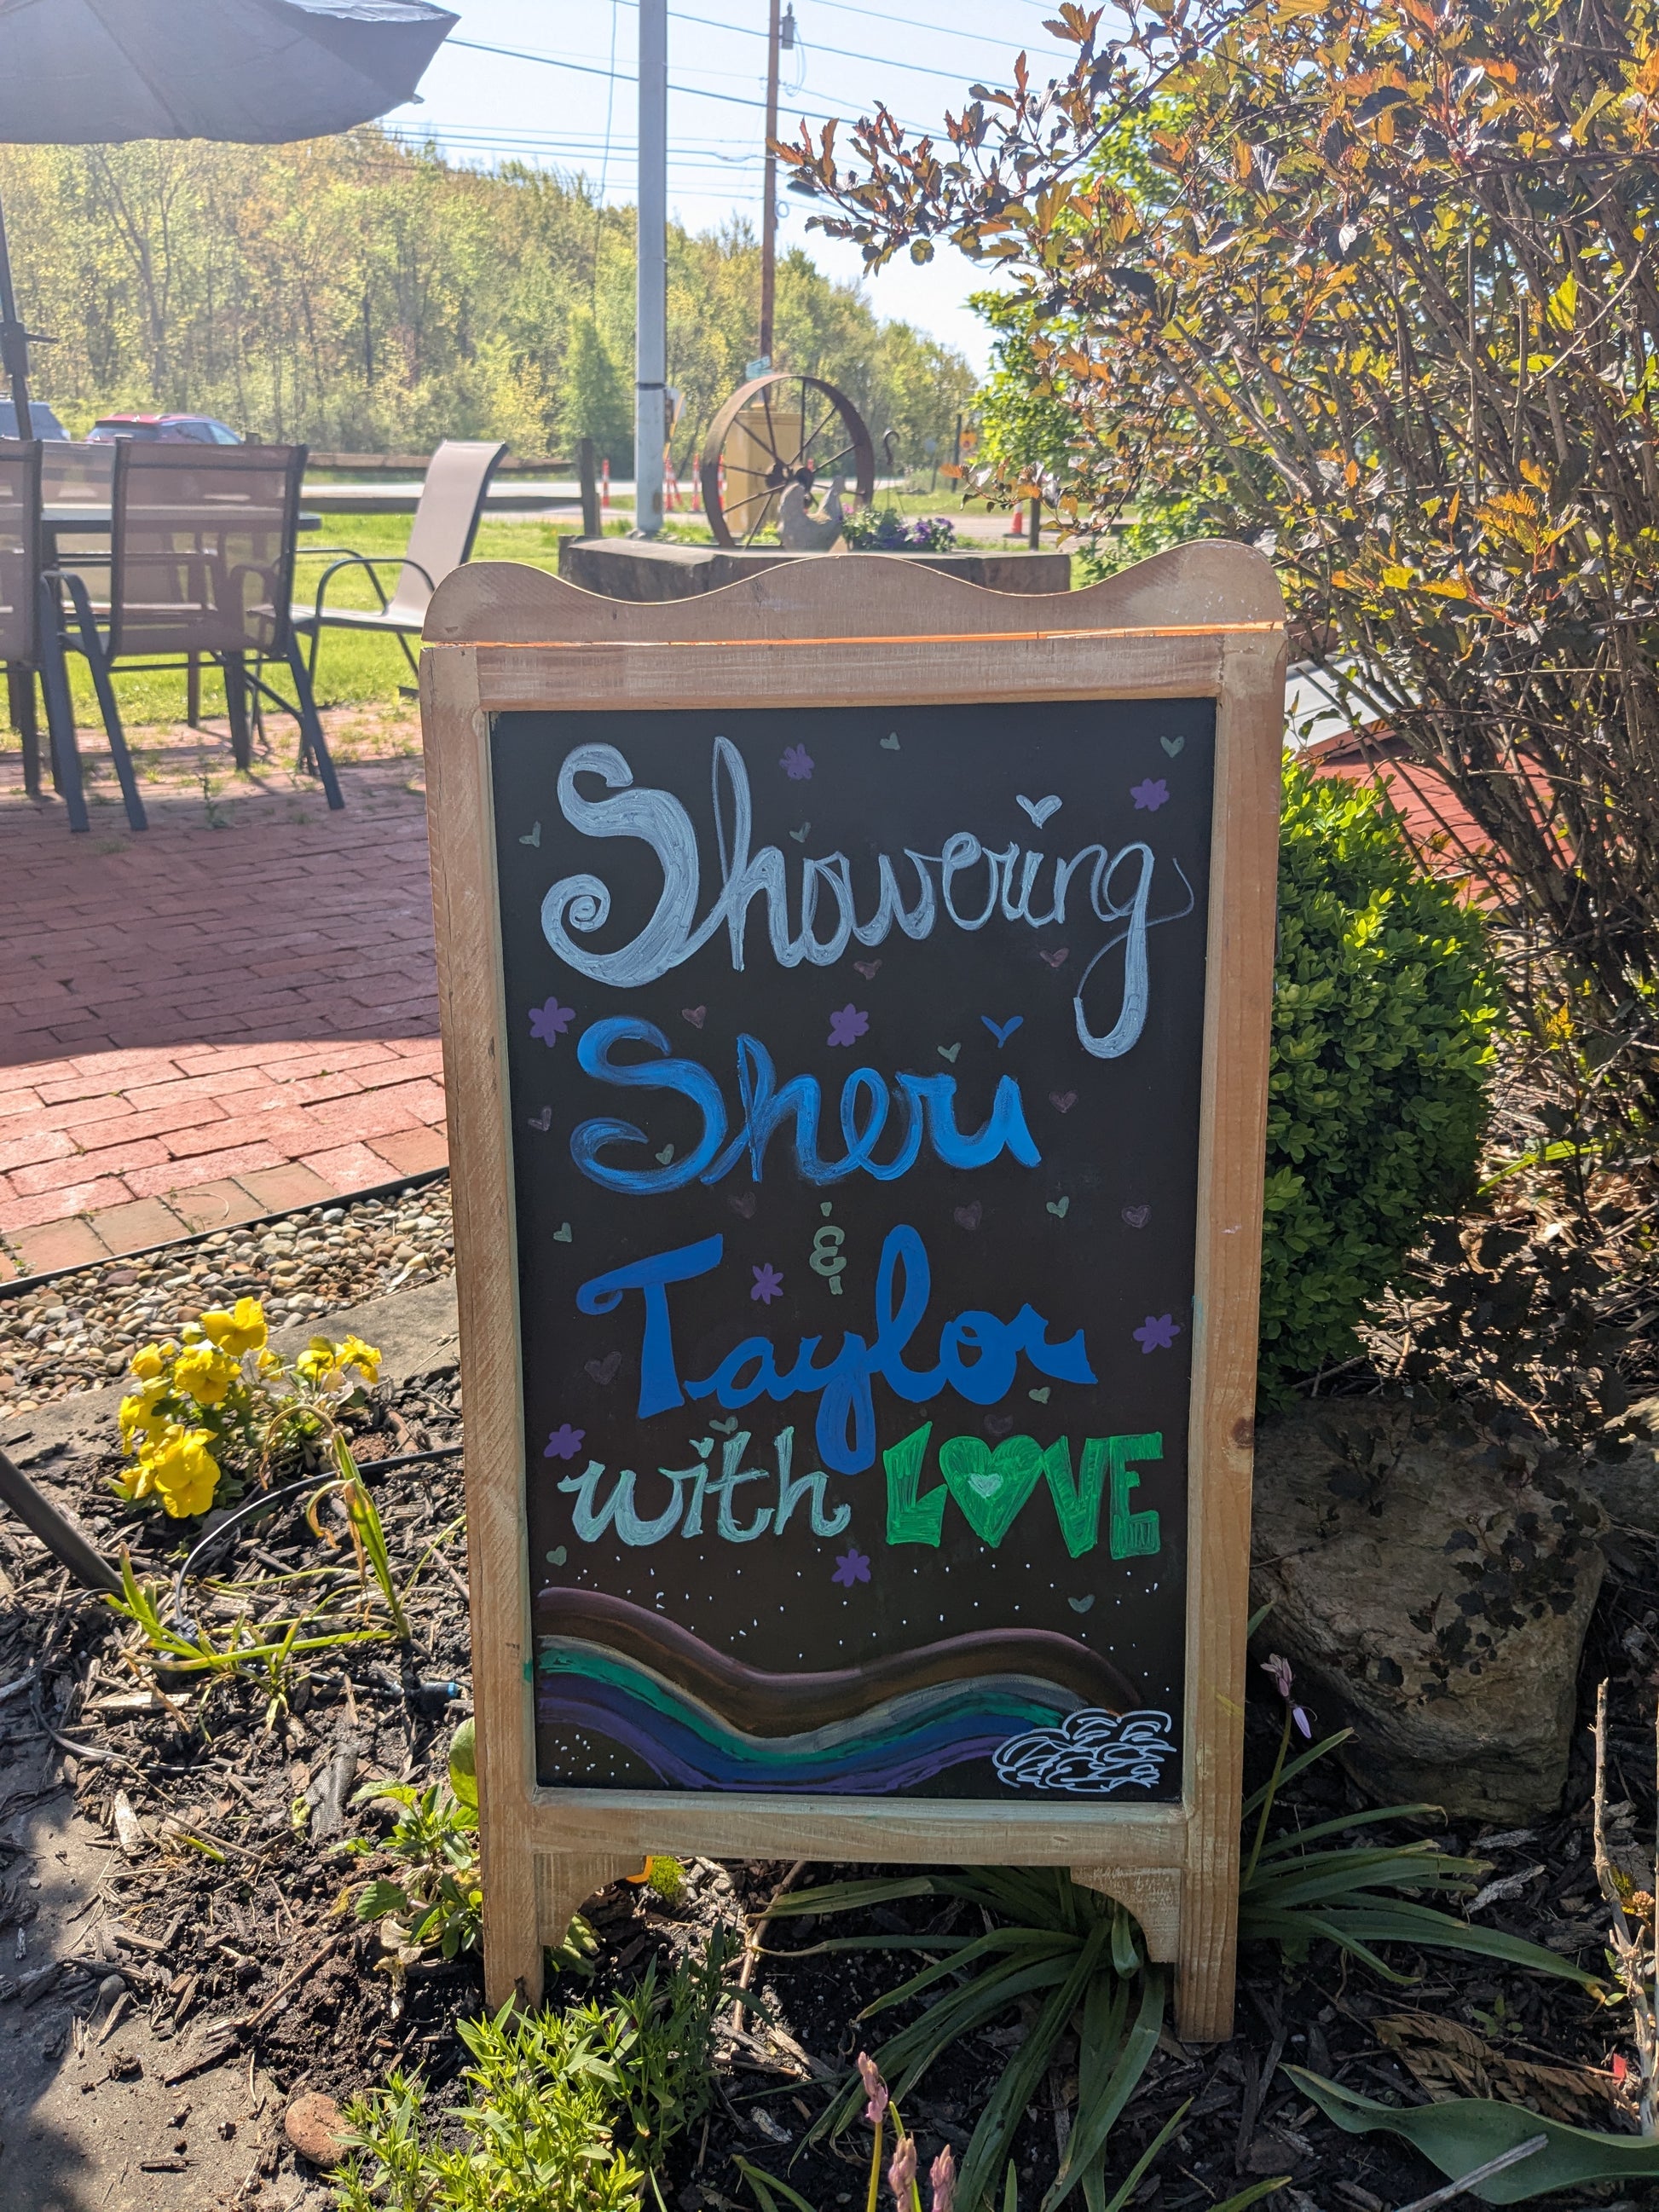 Showering
Sheri
&
Taylor
with LOVE